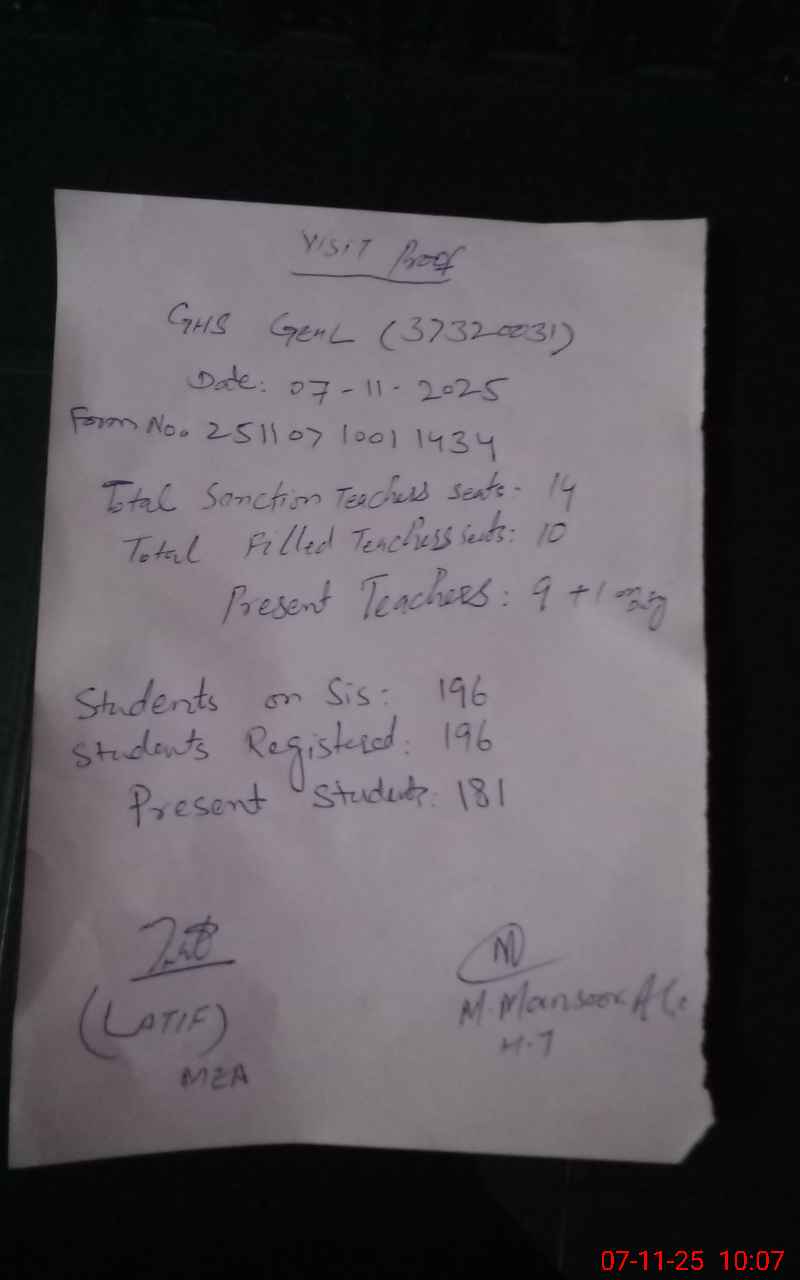 Visit Proof
GHS GenL (37320031)
Date: 07-11-2025
Form No. 2511071001 1434
Total Sanction Teachers seats- 14
Total Filled Teachers seats: 10
Present Teachers: 9 + 1
Students on Sis: 196
Students Registered: 196
Present Students: 181
(LATIF)
MEA
M. Mansoor Ali
H.T
07-11-25 10:07